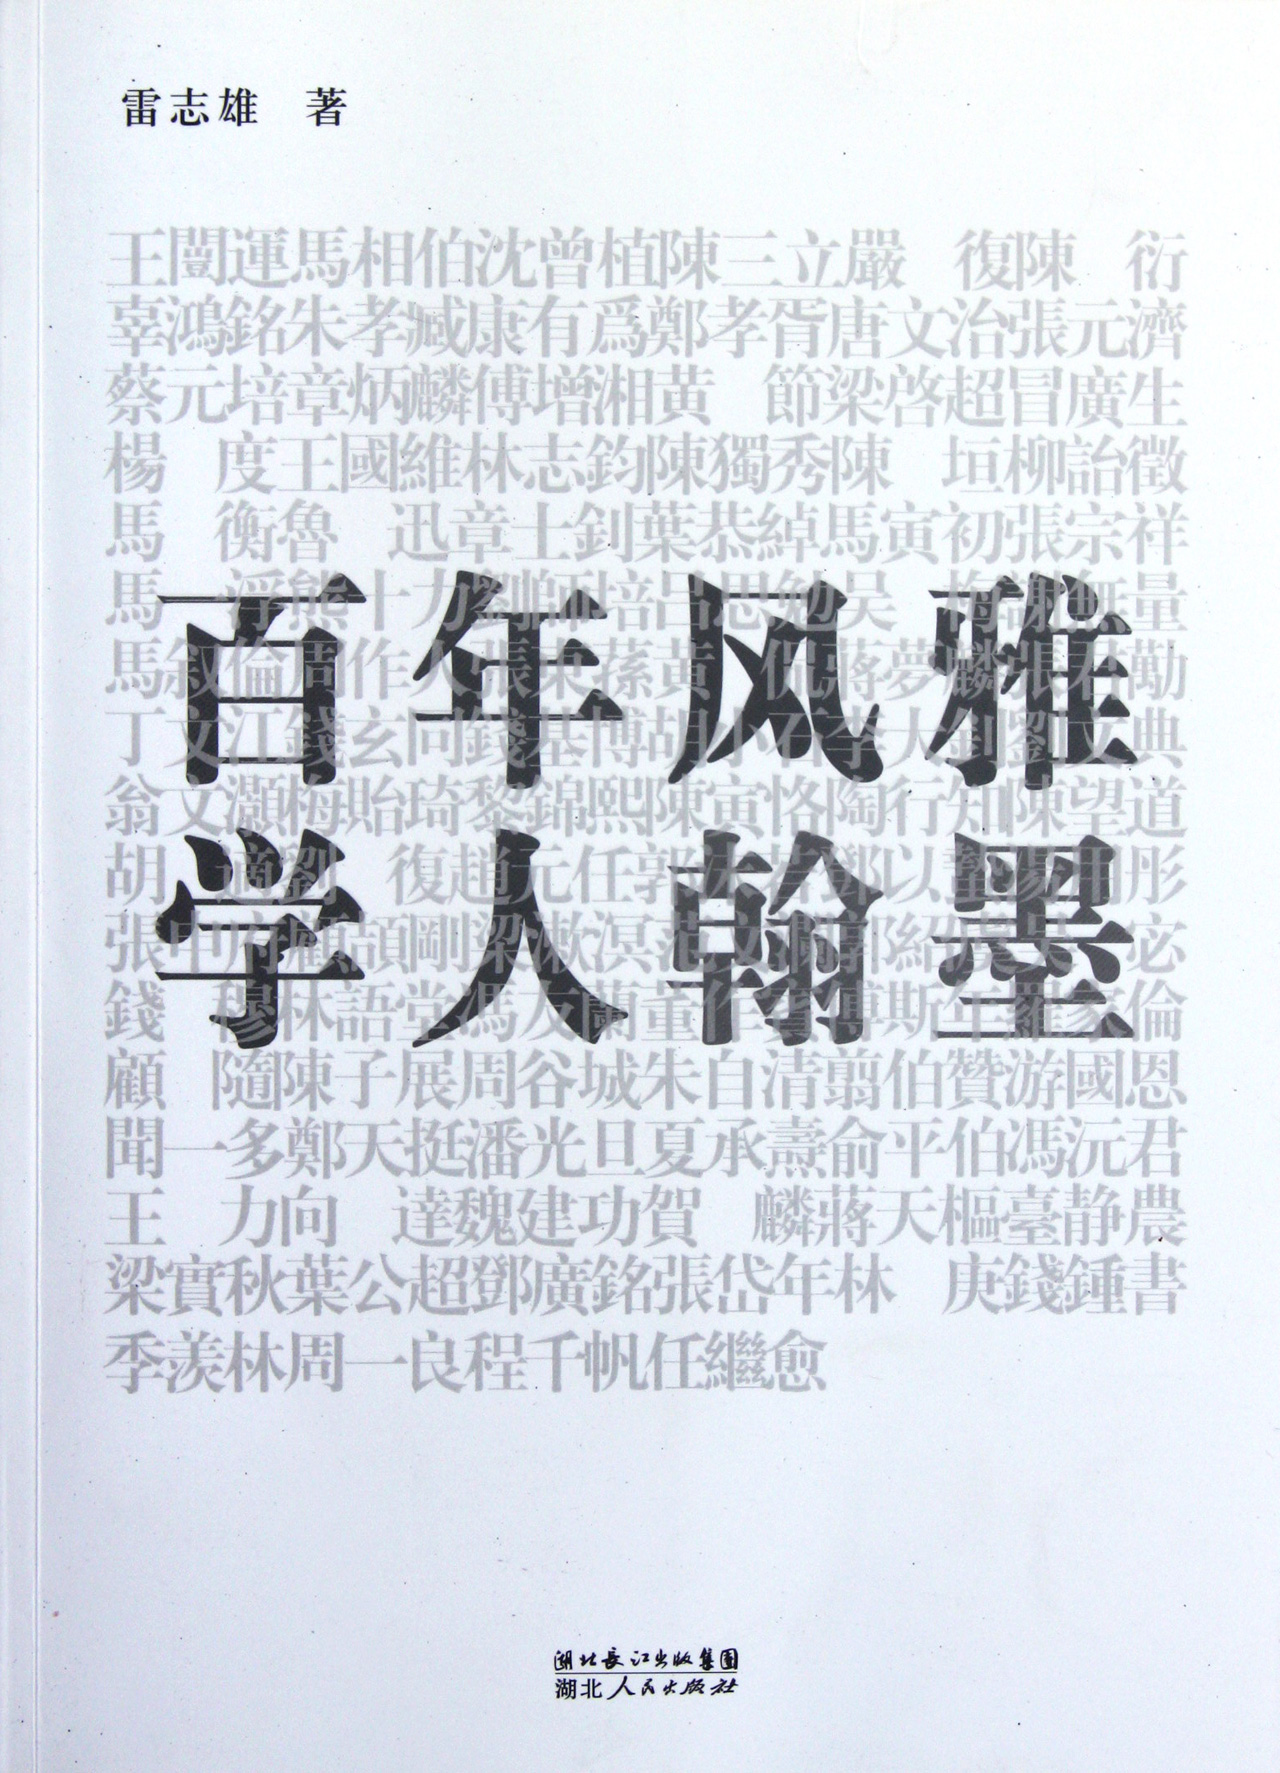 雷志雄 著
王闓運馬相伯沈曾植陳三立嚴 復陳 衍
辜鴻銘朱孝臧康有爲鄭孝胥唐文治張元濟
蔡元培章炳麟傅增湘黄 節梁啓超冒廣生
楊 度王國維林志鈞陳獨秀陳 垣柳詒徵
馬 衡魯 迅章士釗葉恭綽馬寅初張宗祥
馬 浮熊十力劉師培吕思勉吴 梅謝無量
馬叙倫周作人張東蓀黄 侃蔣夢麟張君勱
丁文江錢玄同錢基博胡小石李大釗劉文典
翁文灝梅貽琦黎錦熙陳寅恪陶行知陳望道
胡 適劉 復趙元任郭沫若鄧以蟄楊樹彤
張申府顧頡剛梁漱溟范文瀾郭紹虞吴 宓
錢 穆林語堂馮友蘭董作賓傅斯年羅家倫
顧 隨陳子展周谷城朱自清翦伯贊游國恩
聞一多鄭天挺潘光旦夏承燾俞平伯馮沅君
王 力向 達魏建功賀 麟蔣天樞臺静農
梁實秋葉公超鄧廣銘張岱年林 庚錢鍾書
季羡林周一良程千帆任繼愈
百年风雅
学人翰墨
湖北長江出版集團
湖北人民出版社